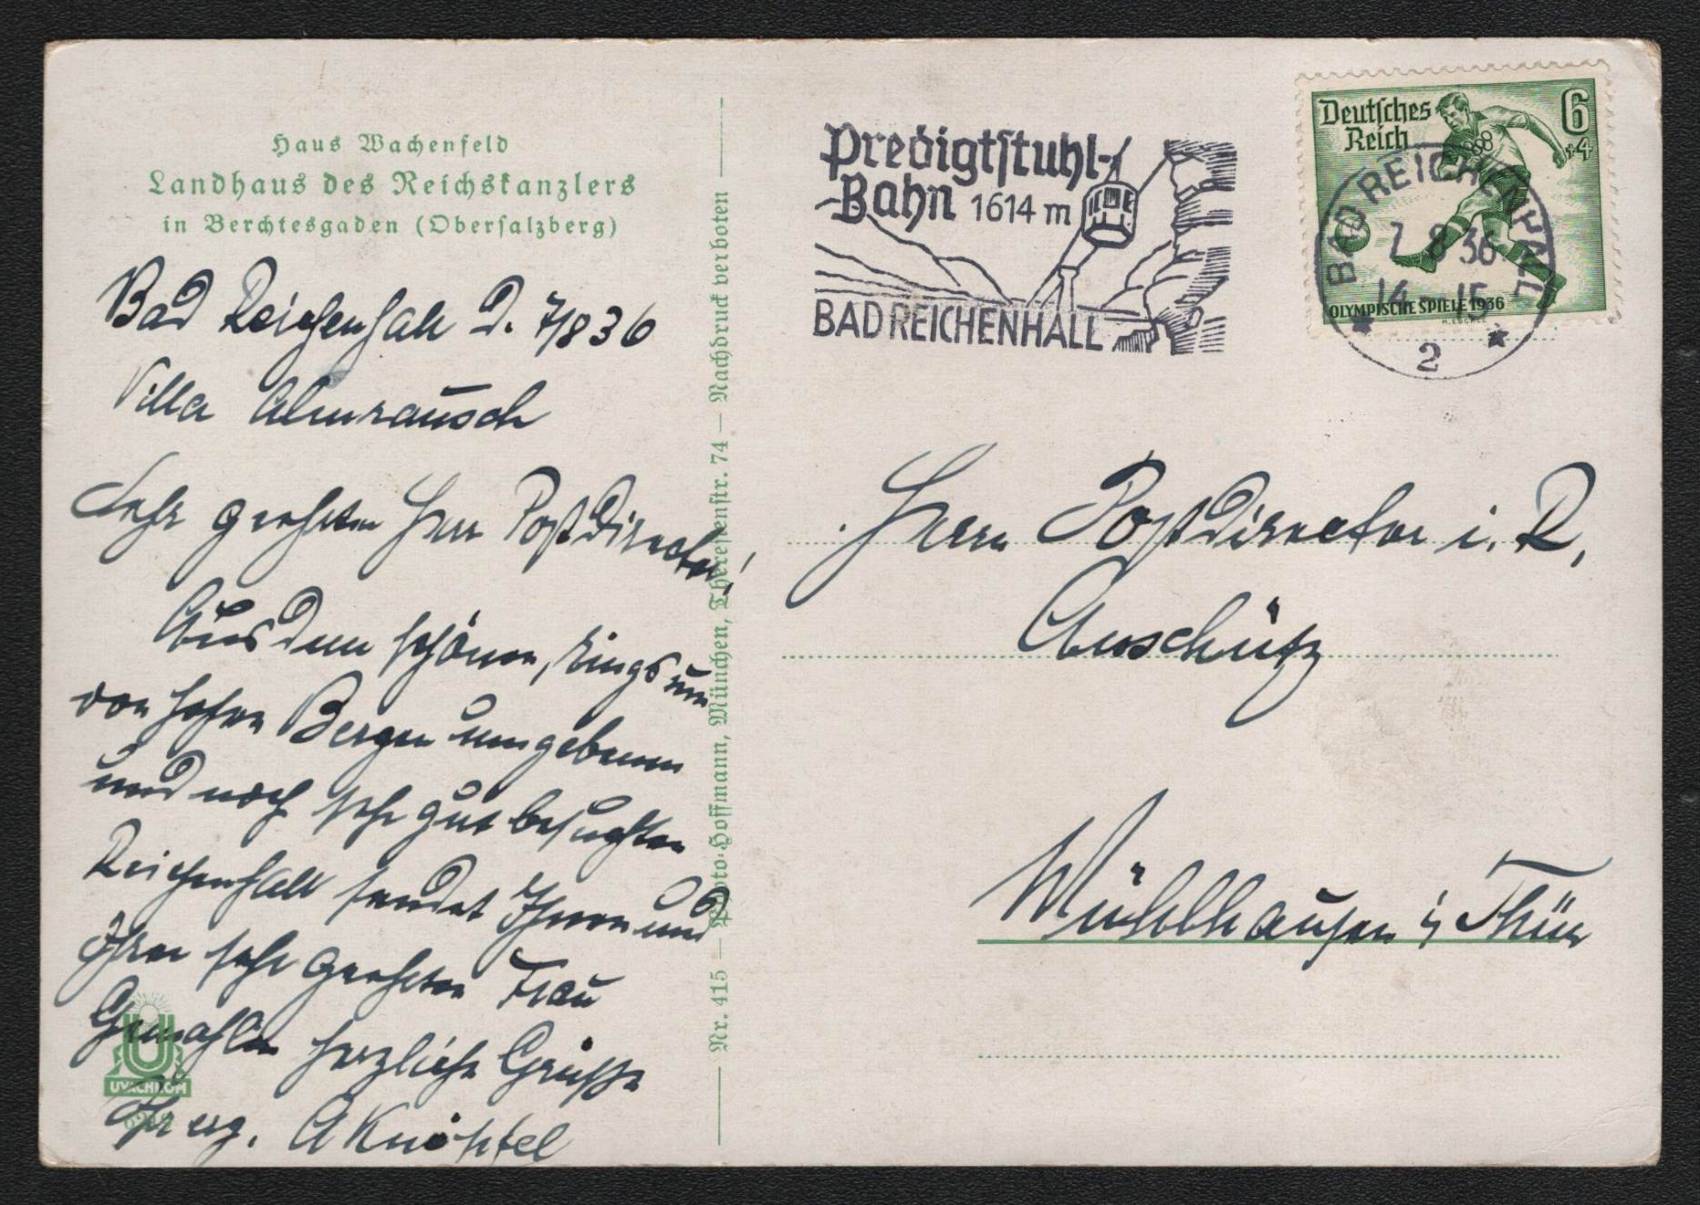 Haus Wachenfeld
Landhaus des Reichskanzlers
in Berchtesgaden (Obersalzberg)
Bad Reichenhall D. 7/8 36
Villa Almrausch
Sehr geehrter Herr Postdirector!
Aus dem schönen, rings um
von hohen Bergen umgebenen
und noch sehr gut besuchten
Reichenhall sendet Ihnen und
Ihrer sehr geehrten Frau
Gemahlin herzliche Grüße
Ihr erg. A
UVACHROM
Nr. 415 — Photo-Hoffmann, München, Theresienstr. 74 — Nachdruck verboten
Predigtstuhl-
-Bahn 1614 m
BAD REICHENHALL
Deutsches
Reich
6+4
OLYMPISCHE SPIELE 1936
BAD REICHENHALL
7.8.36
14-15
2
Herrn Postdirector i. R,
Anschütz
Mühlhausen i/ Thür